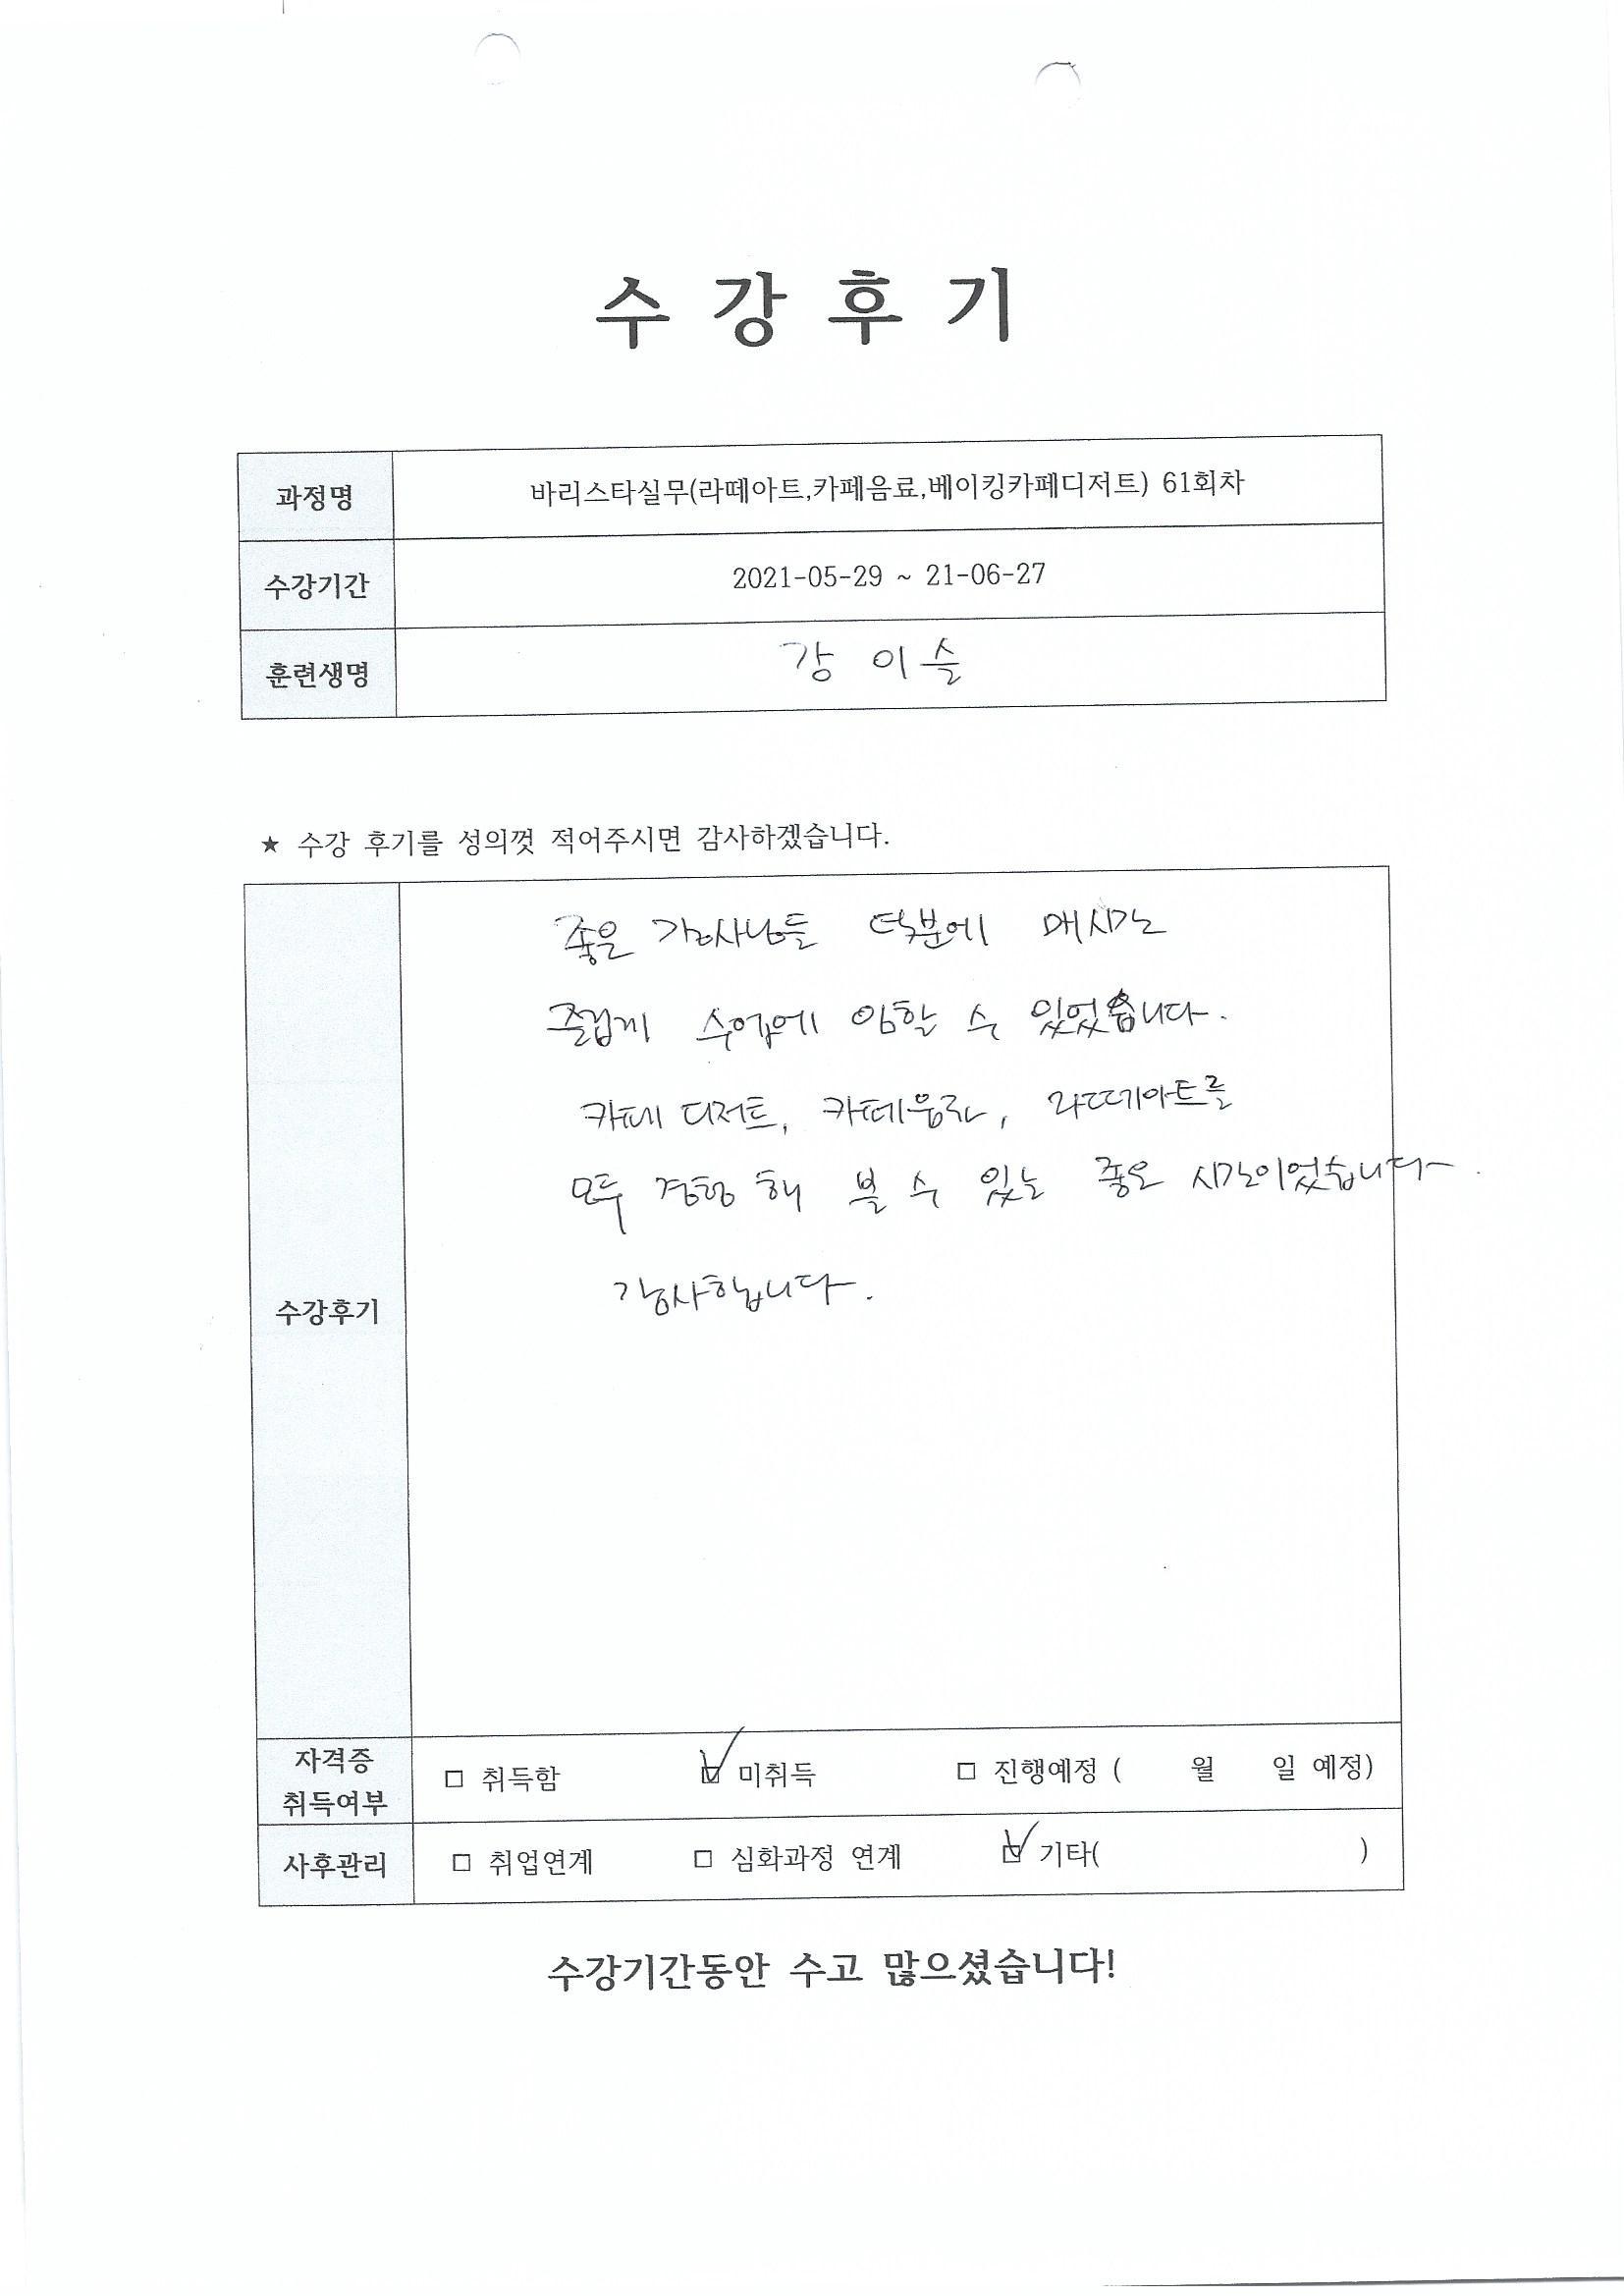 수 강 후 기
과정명 바리스타실무(라떼아트,카페음료,베이킹카페디저트) 61회차
수강기간 2021-05-29 ~ 21-06-27
훈련생명 강 이슬
★ 수강 후기를 성의껏 적어주시면 감사하겠습니다.
좋은 강사님들 덕분에 매시간
즐겁게 수업에 임할 수 있었습니다.
카페 디저트, 카페음료, 라떼아트를
모두 경험 해 볼 수 있는 좋은 시간이었습니다.
감사합니다.
수강후기
자격증
취득여부
□ 취득함 ☑ 미취득 □ 진행예정 ( 월 일 예정)
사후관리 □ 취업연계 □ 심화과정 연계 ☑ 기타( )
수강기간동안 수고 많으셨습니다!